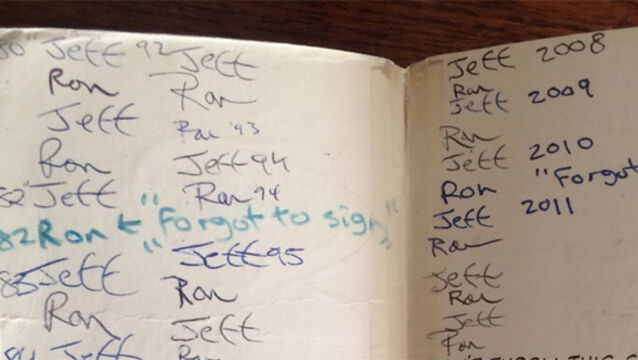 Jeff
Ron
Jeff
Ron
82" Jeff
82 Ron ← "Forgot to sign"
Jeff
Ron
Jeff
92 Jeff
Ron
Ron '93
Jeff 94
Ron 94
Jeff 95
Ron
Jeff
Ron
Jeff 2008
Ron
Jeff 2009
Ron
Jeff 2010
Ron "Forgot
Jeff 2011
Ron
Jeff
Ron
Jeff
Ron